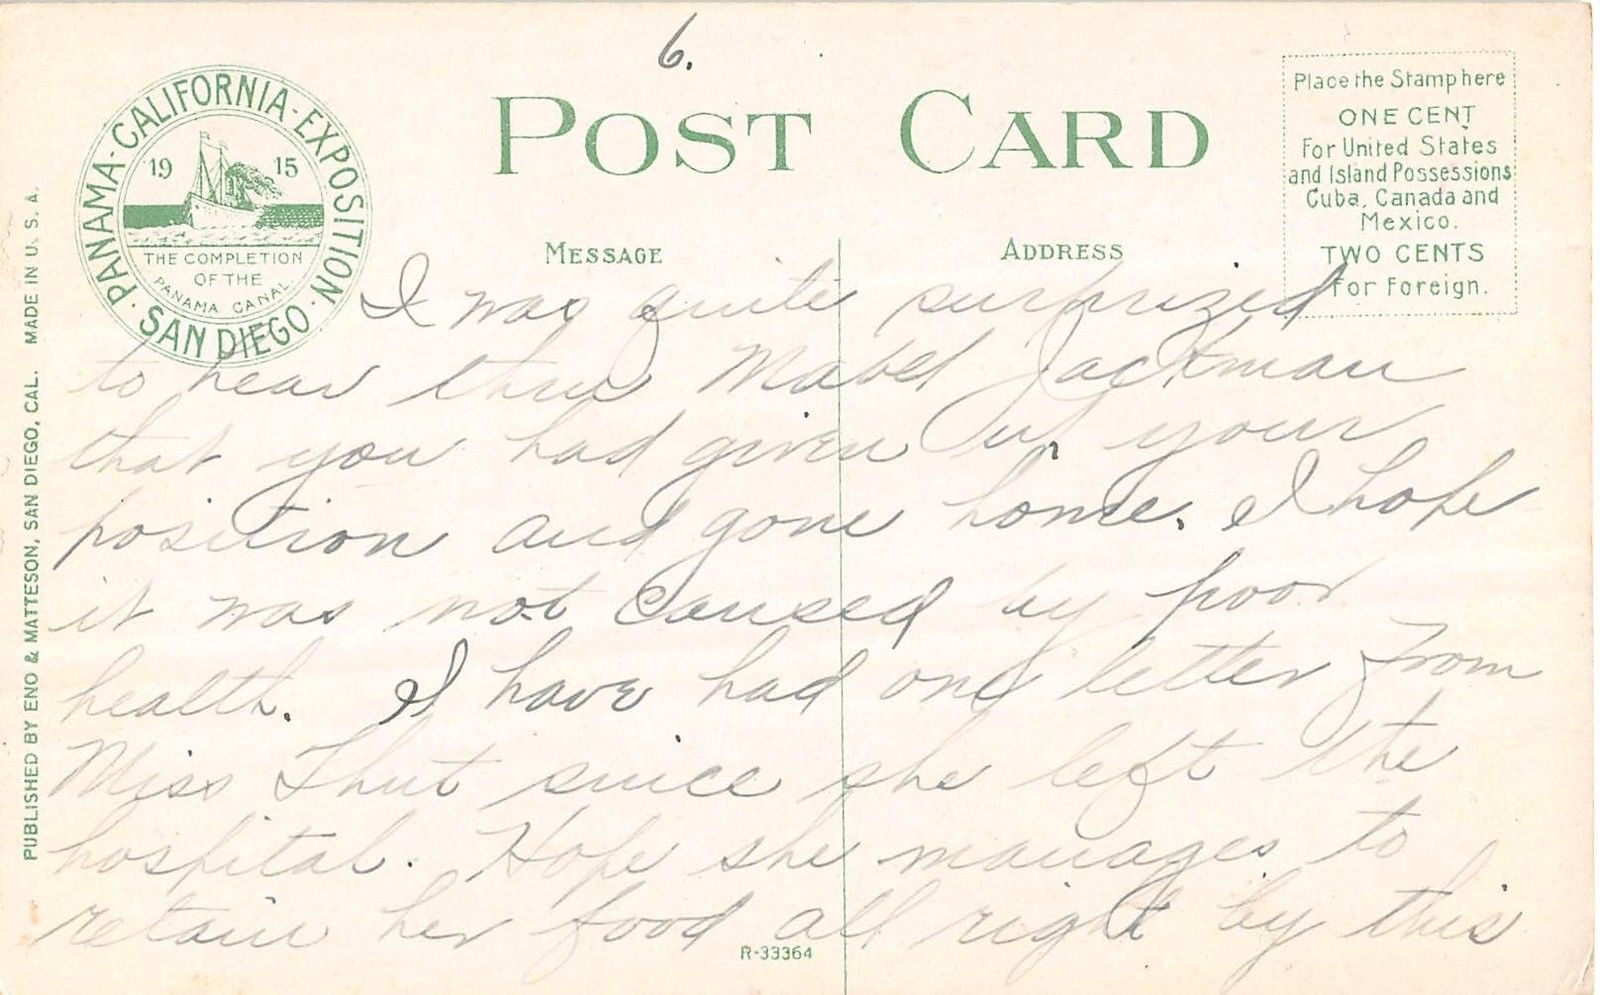 6.
POST CARD
PANAMA-CALIFORNIA-EXPOSITION
19 15
THE COMPLETION
OF THE
PANAMA CANAL
SAN DIEGO
Place the Stamp here
ONE CENT
For United States
and Island Possessions
Cuba, Canada and
Mexico.
TWO CENTS
For Foreign.
MESSAGE
ADDRESS
I was quite surprized
to hear thru Mabel Jackman
that you had given up your
position and gone home. I hope
it was not caused by poor
health. I have had one letter from
Miss Thut since she left the
hospital. Hope she manages to
retain her food all right by this
R-33364
PUBLISHED BY ENO & MATTESON, SAN DIEGO, CAL. MADE IN U. S. A.